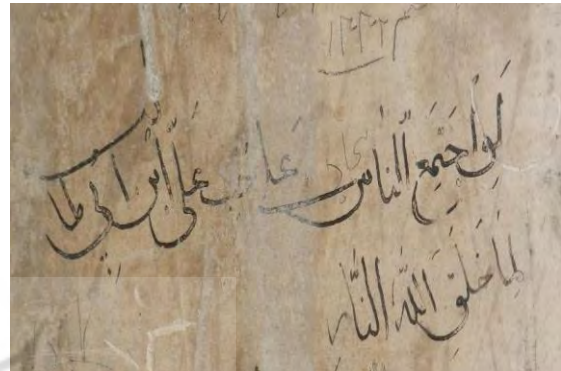 لَو اجتَمَعَ النّاس عَلی حُب عَلیّ اْبن ابی طالب
لِما خَلَقَ اللهُ النّار